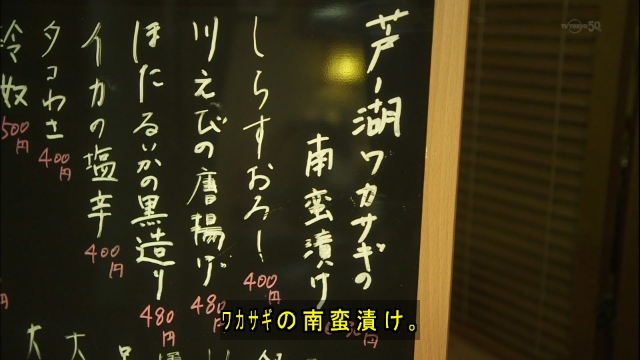 芦ノ湖ワカサギの
南蛮漬け
しらすおろし
400円
川えびの唐揚げ
480円
ほたるいかの黒造り
480円
イカの塩辛
400円
タコわさ
400円
冷奴
500円
TV TOKYO 50
ワカサギの南蛮漬け。